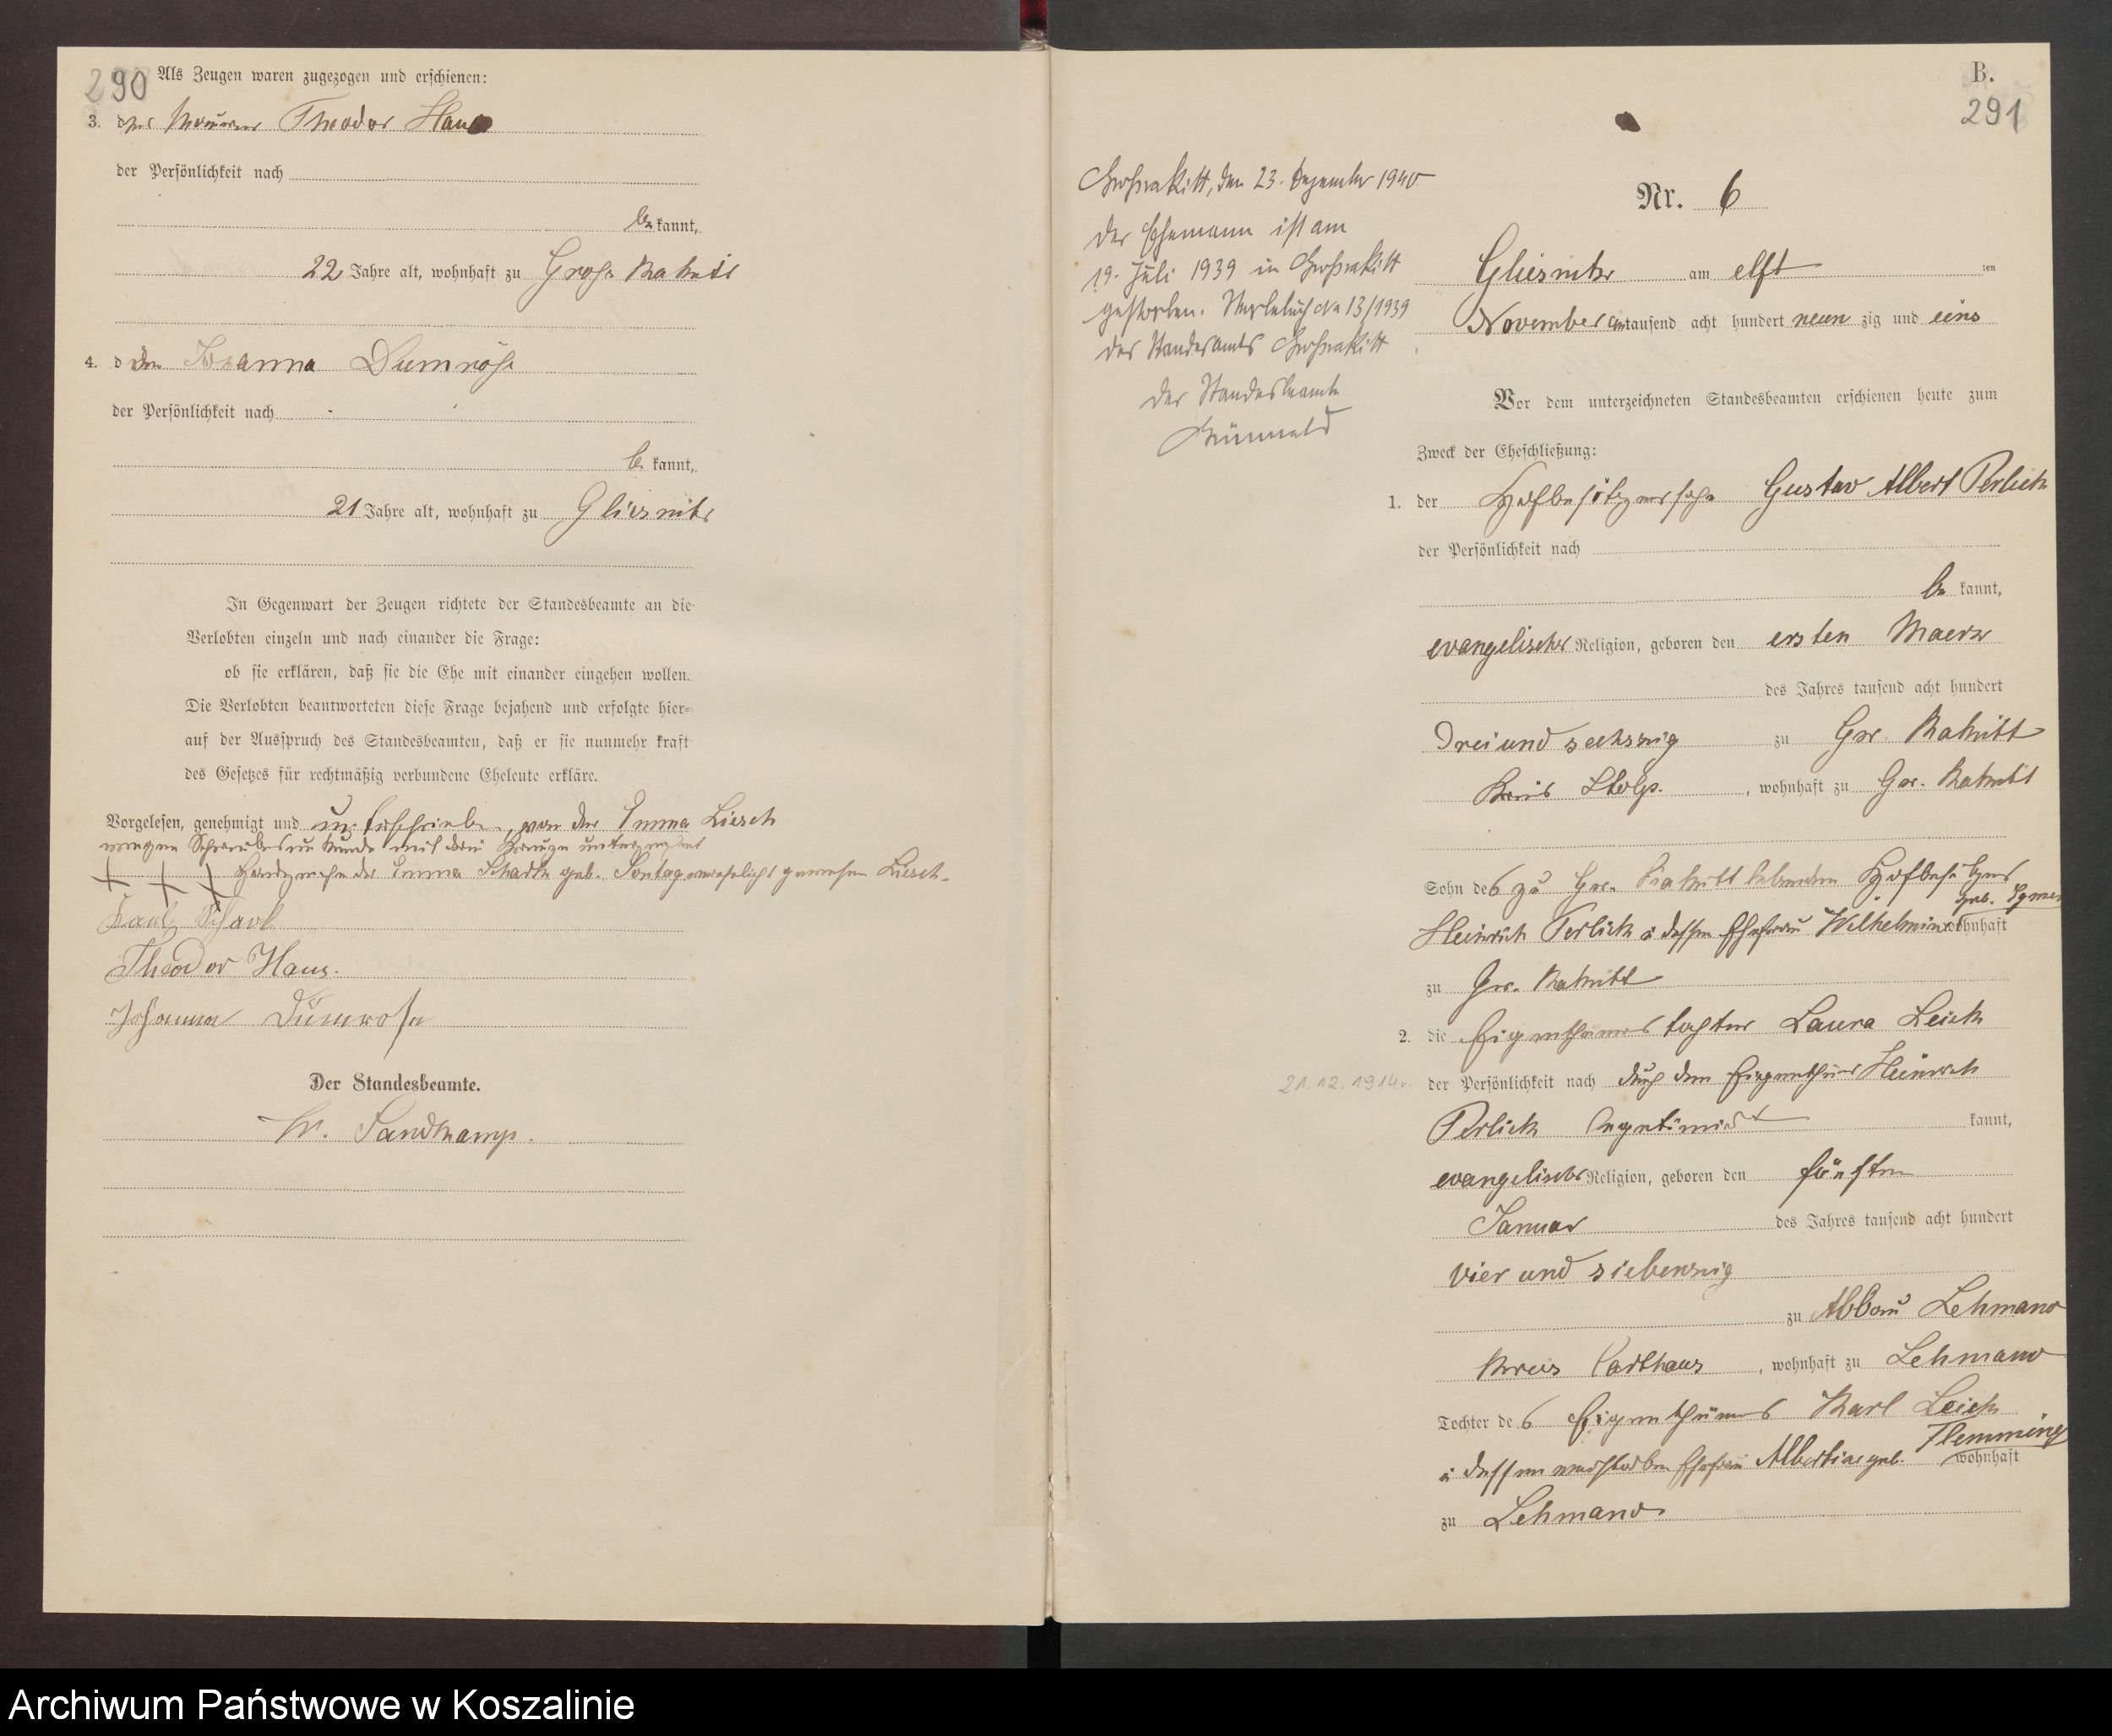 290 Als Zeugen waren zugezogen und erschienen:
3. der Maurer Theodor Haus
der Persönlichkeit nach
be kannt,
22 Jahre alt, wohnhaft zu Gross Rakitt
4. die Johanna Dumröse
der Persönlichkeit nach
be kannt,
21 Jahre alt, wohnhaft zu Gliesnitz
In Gegenwart der Zeugen richtete der Standesbeamte an die
Verlobten einzeln und nach einander die Frage:
ob sie erklären, daß sie die Ehe mit einander eingehen wollen.
Die Verlobten beantworteten diese Frage bejahend und erfolgte hier-
auf der Ausspruch des Standesbeamten, daß er sie nunmehr kraft
des Gesetzes für rechtmäßig verbundene Eheleute erkläre.
Vorgelesen, genehmigt und unterschrieben, von der Emma Liesch
wegen Schreibensunkunde mit drei Kreuze unterzeichnet
+ + + Handzeichen der Emma geb. Liesch
Theodor Haus.
Johanna Dümrose
Der Standesbeamte.
W. Sandkamp.
B.
291
Großrakitt, den 23. Dezember 1940
Der Ehemann ist am
19. Juli 1939 in Großrakitt
gestorben. Sterbebuch Nr 13/1939
des Standesamts Großrakitt
Der Standesbeamte
Nr. 6
Gliesnitz am elft ten
November eintausend acht hundert neun zig und eins
Vor dem unterzeichneten Standesbeamten erschienen heute zum
Zweck der Eheschließung:
1. der Hofbesitzersohn Gustav Albert Perlick
der Persönlichkeit nach
be kannt,
evangelischer Religion, geboren den ersten Maerz
des Jahres tausend acht hundert
drei und sechszig zu Gr. Rakitt
Kreis Stolp. , wohnhaft zu Gr. Rakitt
Sohn des zu Gr. Rakitt lebenden Hofbesitzers
Heinrich Perlick u dessen Ehefrau Wilhelmine geb. wohnhaft
zu Gr. Rakitt
2. die Eigenthümerstochter Laura Leick
21.12.1914. der Persönlichkeit nach durch den Eigenthümer Heinrich
Perlick legitimirt kannt,
evangelischer Religion, geboren den fünften
Januar des Jahres tausend acht hundert
vier und siebenzig
zu Abbau Lehmano
Kreis Carthaus , wohnhaft zu Lehmano
Tochter des Eigenthümers Karl Leick
u dessen verstorben Ehefrau Albertine geb. Flemming wohnhaft
zu Lehmano
Archiwum Państwowe w Koszalinie